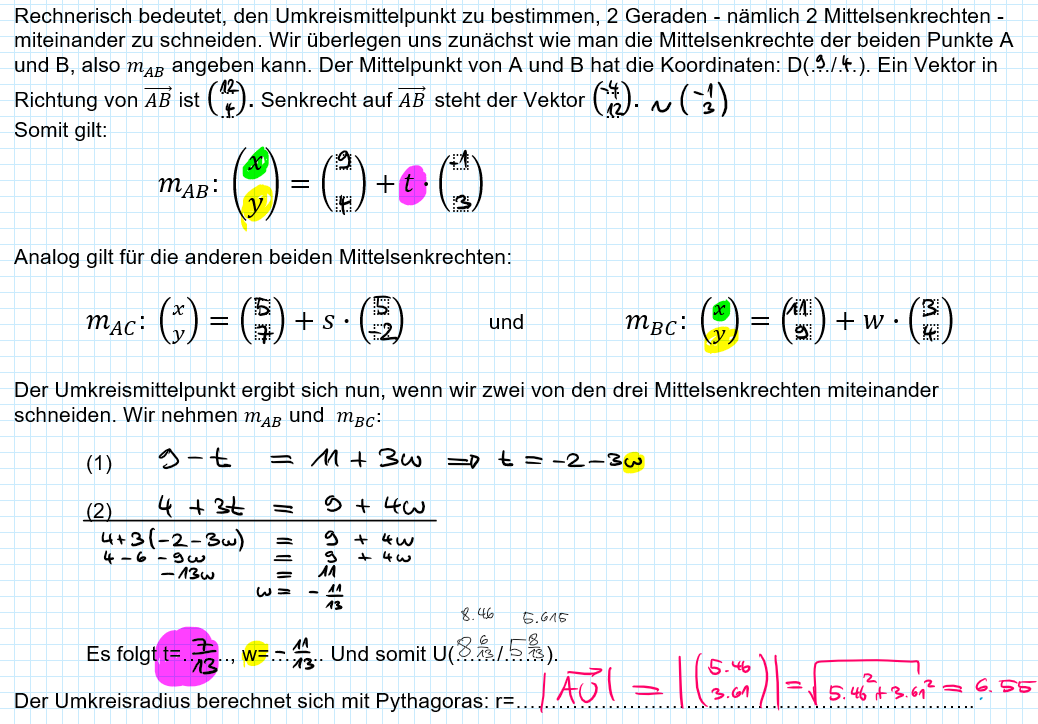 Rechnerisch bedeutet, den Umkreismittelpunkt zu bestimmen, 2 Geraden - nämlich 2 Mittelsenkrechten -
miteinander zu schneiden. Wir überlegen uns zunächst wie man die Mittelsenkrechte der beiden Punkte A
und B, also m_AB angeben kann. Der Mittelpunkt von A und B hat die Koordinaten: D(.9./.4.). Ein Vektor in
Richtung von \overrightarrow{AB} ist \binom{12}{4}. Senkrecht auf \overrightarrow{AB} steht der Vektor \binom{-4}{12}. ~ \binom{-1}{3}
Somit gilt:
m_AB: \binom{x}{y} = \binom{9}{4} + t · \binom{-1}{3}
Analog gilt für die anderen beiden Mittelsenkrechten:
m_AC: \binom{x}{y} = \binom{5}{7} + s · \binom{5}{-2} und m_BC: \binom{x}{y} = \binom{11}{9} + w · \binom{3}{4}
Der Umkreismittelpunkt ergibt sich nun, wenn wir zwei von den drei Mittelsenkrechten miteinander
schneiden. Wir nehmen m_AB und m_BC:
(1) 9 - t = 11 + 3w ⇒ t = -2 - 3w
(2) 4 + 3t = 9 + 4w
4+3(-2-3w) = 9 + 4w
4 - 6 - 9w = 9 + 4w
-13w = 11
w = - 11/13
8.46 5.615
Es folgt t= 7/13, w= - 11/13. Und somit U(8 6/13 / 5 8/13).
Der Umkreisradius berechnet sich mit Pythagoras: r= |\overrightarrow{AU}| = |\binom{5.46}{3.61}| = √(5.46² + 3.61²) = 6.55